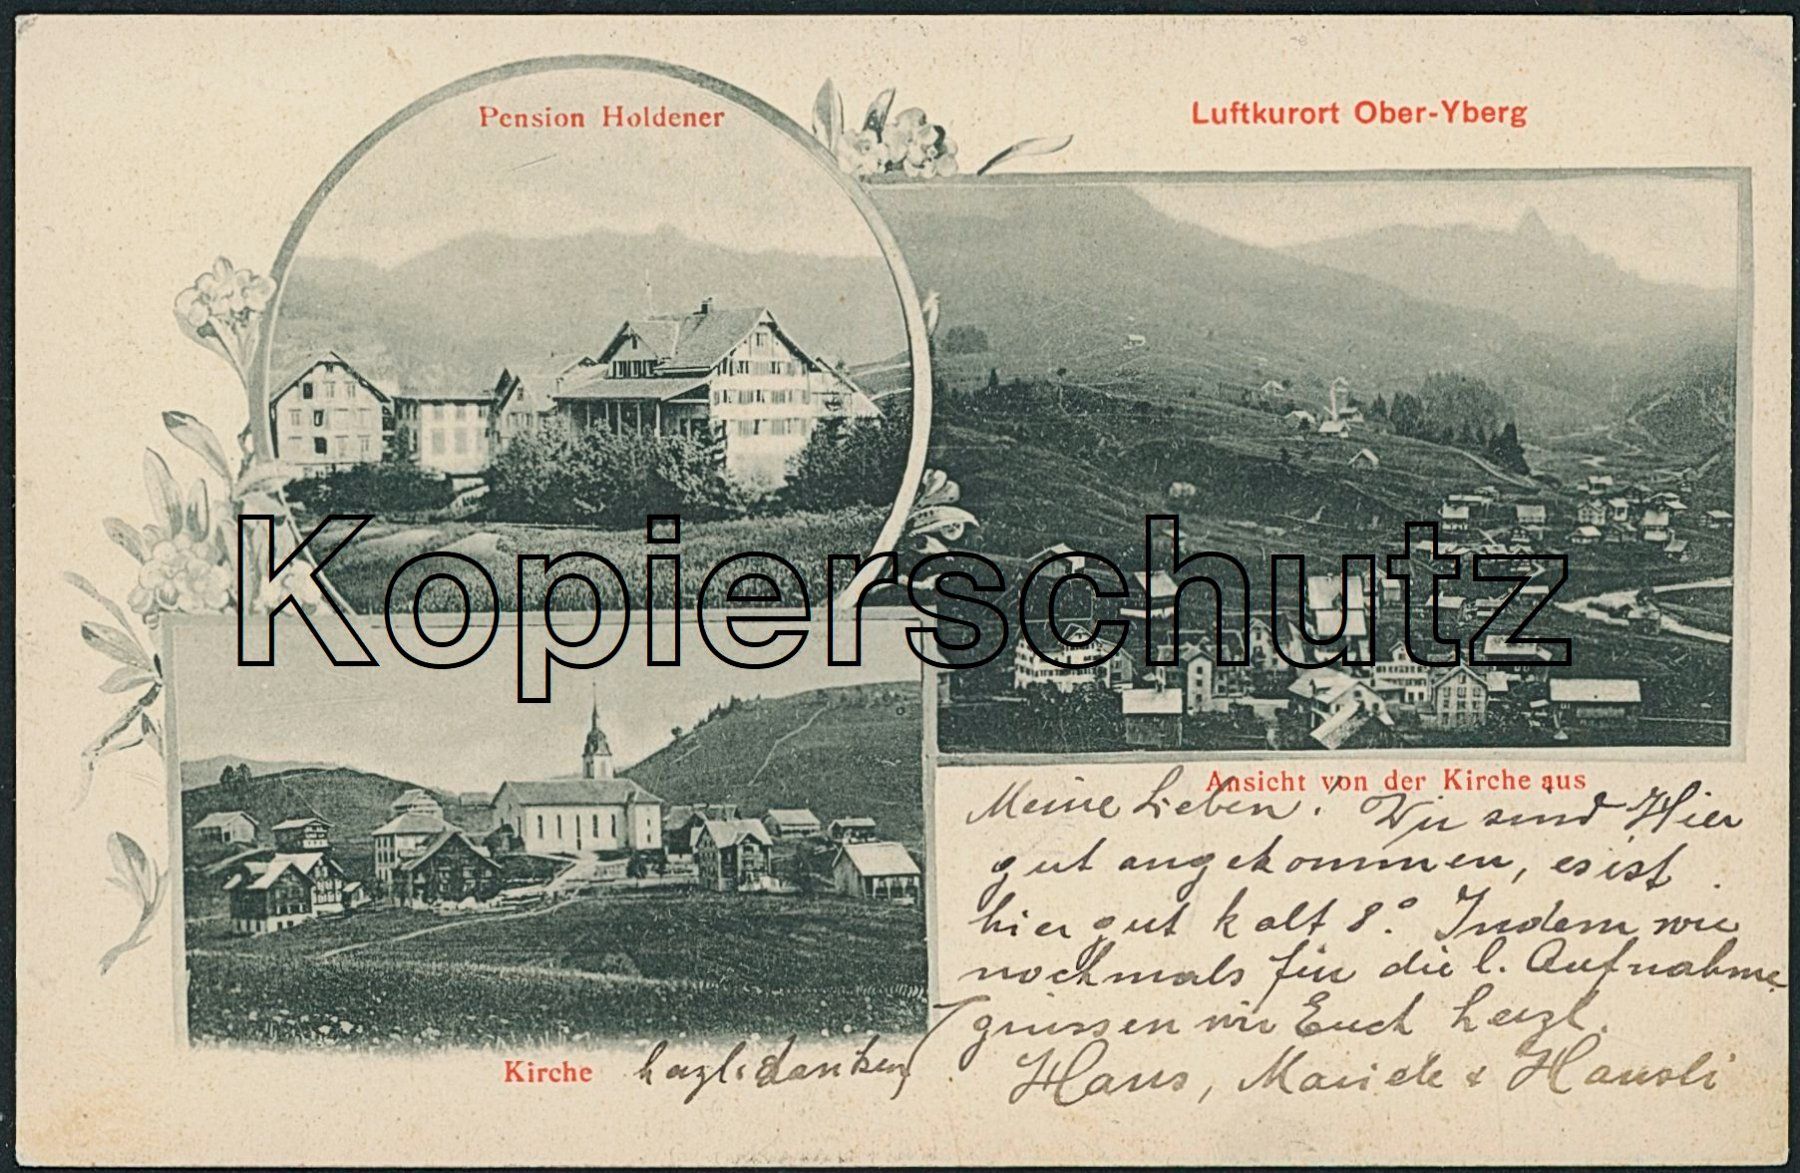 Pension Holdener
Luftkurort Ober-Yberg
Kopierschutz
Ansicht von der Kirche aus
Meine Lieben! Wir sind Hier
gut angekommen, es ist
hier gut kalt 8°. Indem wir
nochmals für die l. Aufnahme
herzl. danken,
grüssen wir Euch herzl.
Hans, Mariele & Hansli
Kirche